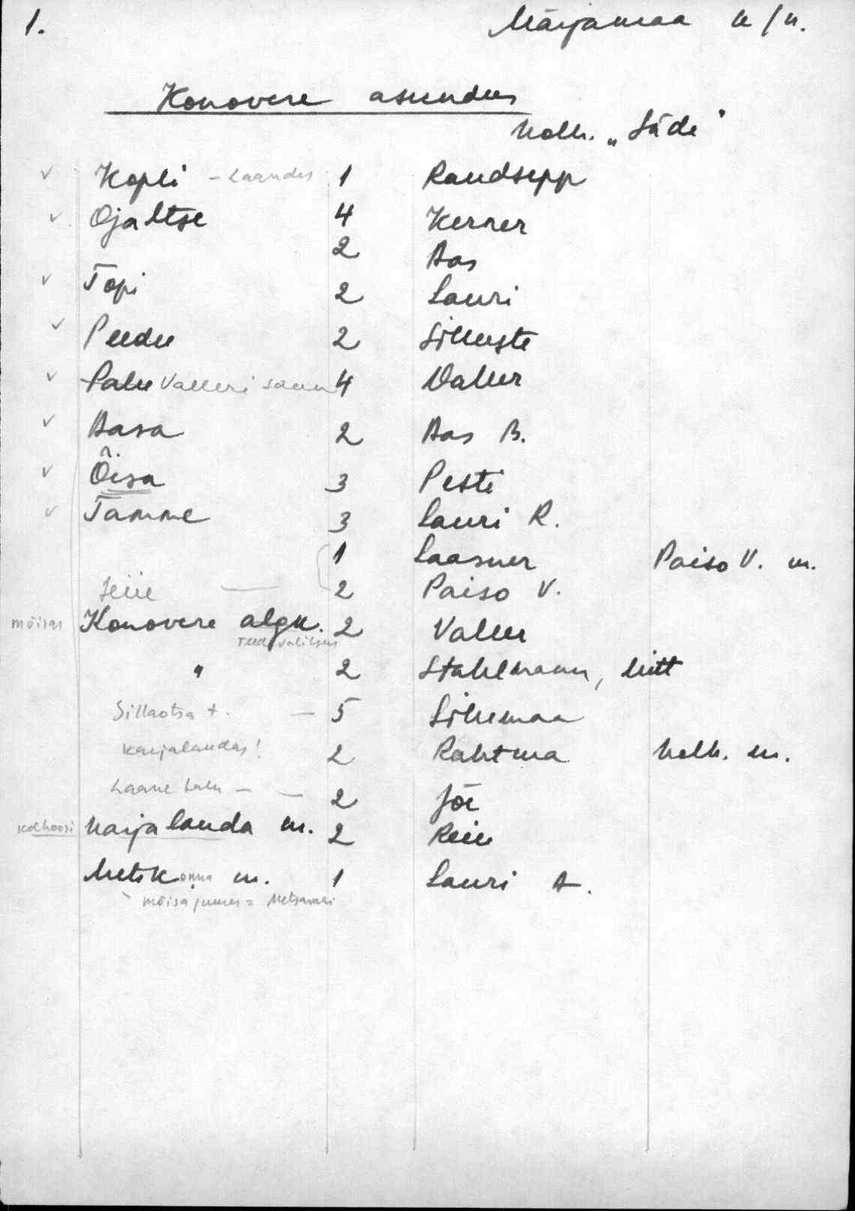 1. Märjamaa k/n.
Konovere asundus
kolh. „Säde"
✓ Kopli – Laandes 1 Raudsepp
✓ Ojaltse 4 Kerner
2 Aas
✓ Topi 2 Lauri
✓ Peedu 2 Silluste
✓ Palu Valleri saun 4 Valler
✓ Aasa 2 Aas B.
✓ Õisa 3 Pesti
✓ Tamme 3 Lauri R.
1 Laasner Paiso V. m.
2 Paiso V.
mõisas Konovere algk. 2 Valler
" 2 Stahlmann, Kitt
Sillaotsa t. – 5 Sillemaa
Karjalaudas! 2 Rahtma kolh. m.
Laane talu – – 2 Jõe
kolhoosi karjalauda m. 2 Rein
Metskonna m. 1 Lauri A.
mõisa juures =